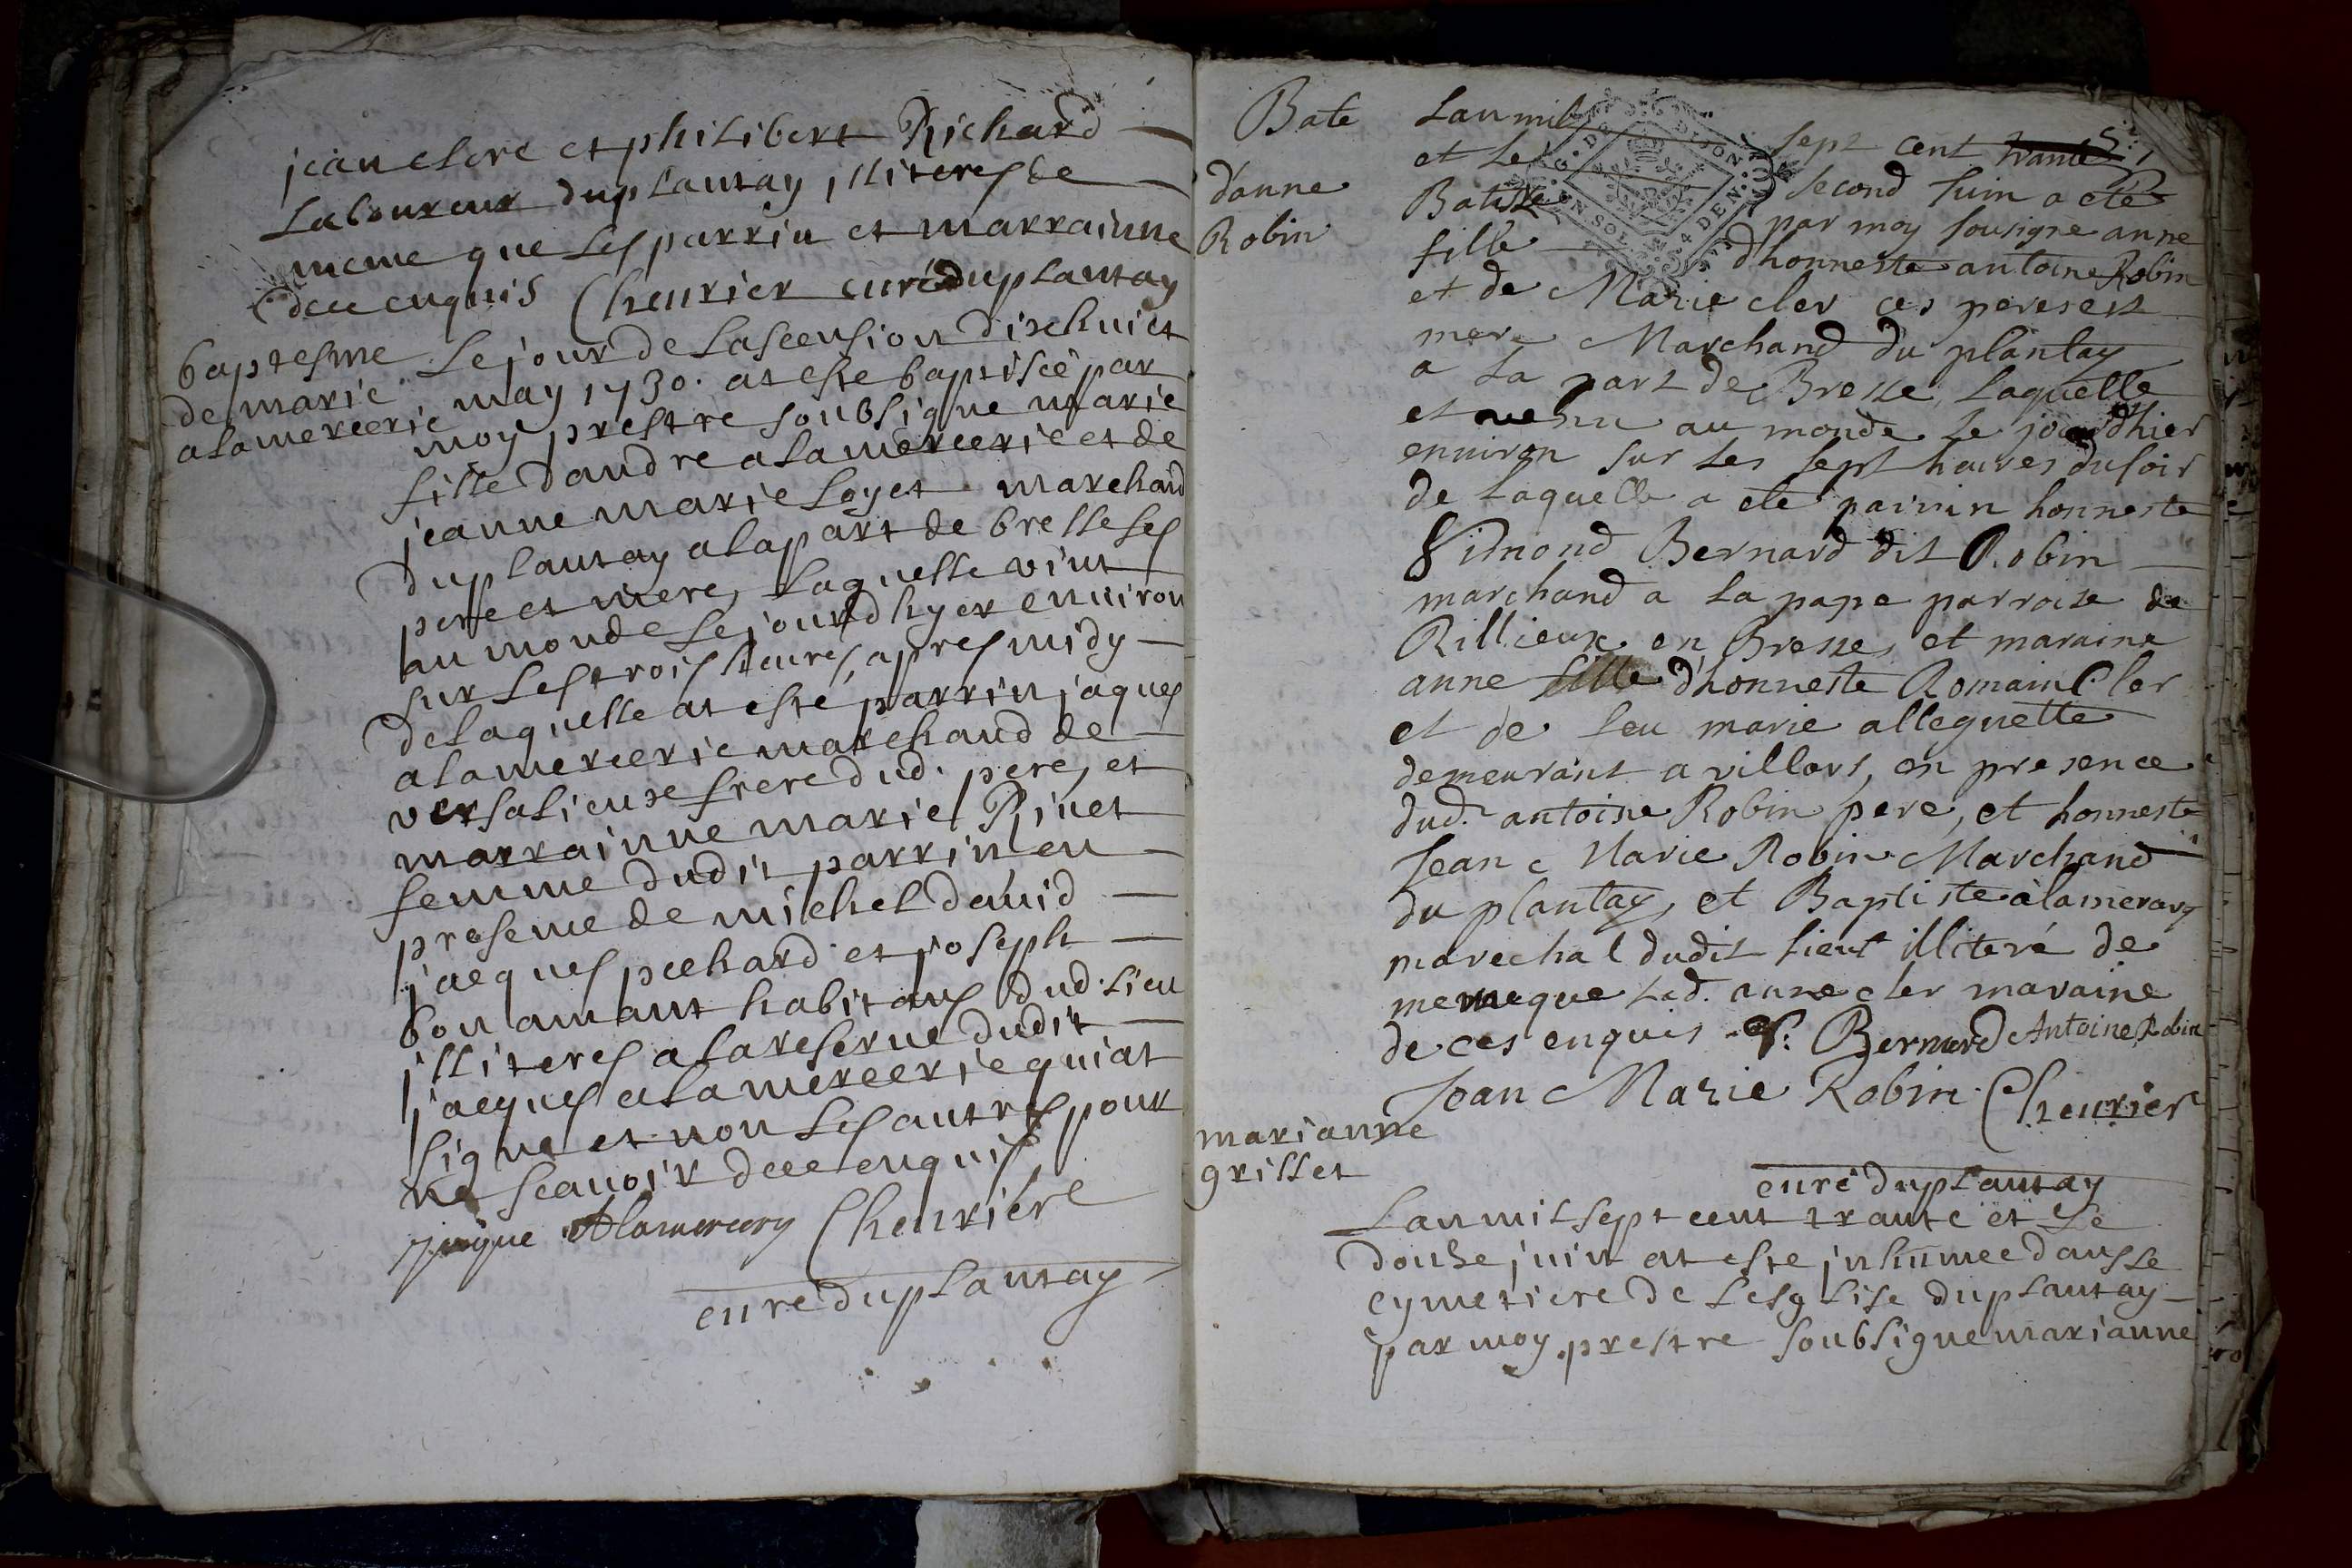 jean clere et philibert Richard
Laboureur du plantay illiteres de
meme que les parrin et marrainne
de ce enquis Cheurier curé du plantay
baptesme
de marie
alamercerie
Le jour de Lascension dixhuict
may 1730. at este baptisée par
moy prestre soubsigne marie
fille dandre alamercerie et de
jeanne marie loyet marchand
du plantay a la part de bresse ses
pere et mere, Laquelle vint
au monde le jourdhyer environ
sur les trois heures apres midy
de laquelle at esté parrin jaques
alamercerie marchand de
versalieux frere dud. pere, et
marrainne marie Rivet
femme dudit parrin en
presence de michel david
jacques pechard et joseph
bonamant habitans dud. lieu
illiteres a la reserve dudit
jacques alamercerie qui at
signe et non les autres pour
ne scavoir de ce enquis
jaque Alamercery Cheuriere
cure du plantay
Bate
d'anne
Robin
Lan mil sept cent trante
et le second Juin a eté
Batisse par moy sousigné anne
fille dhonneste antoine Robin
et de Marie cler ces peres et
mere Marchand du plantay
a la part de Bresse, Laquelle
et venu au monde le jourdhier
environ sur les sept heures du soir
de laquelle a eté parrin honneste
Bernard dit Robin
marchand a la pape parroise de
Rillieux en Bresse, et maraine
anne fille d'honneste Romain Cler
et de feu marie alleguette
demeurant a villars, en presence
dud. antoine Robin pere, et honneste
Jean Marie Robin Marchand
du plantay, et Baptiste alamercery
marechal dudit lieu illiteré de
meme que lad. anne cler maraine
de ces enquis Bernard Antoine Robin
Jean Marie Robin Cheurier
curé du plantay
marianne
grillet
Lan mil sept cent trante et le
douse juin at este inhumee dans le
cymetiere de lesglise du plantay
par moy prestre soubsigne marianne